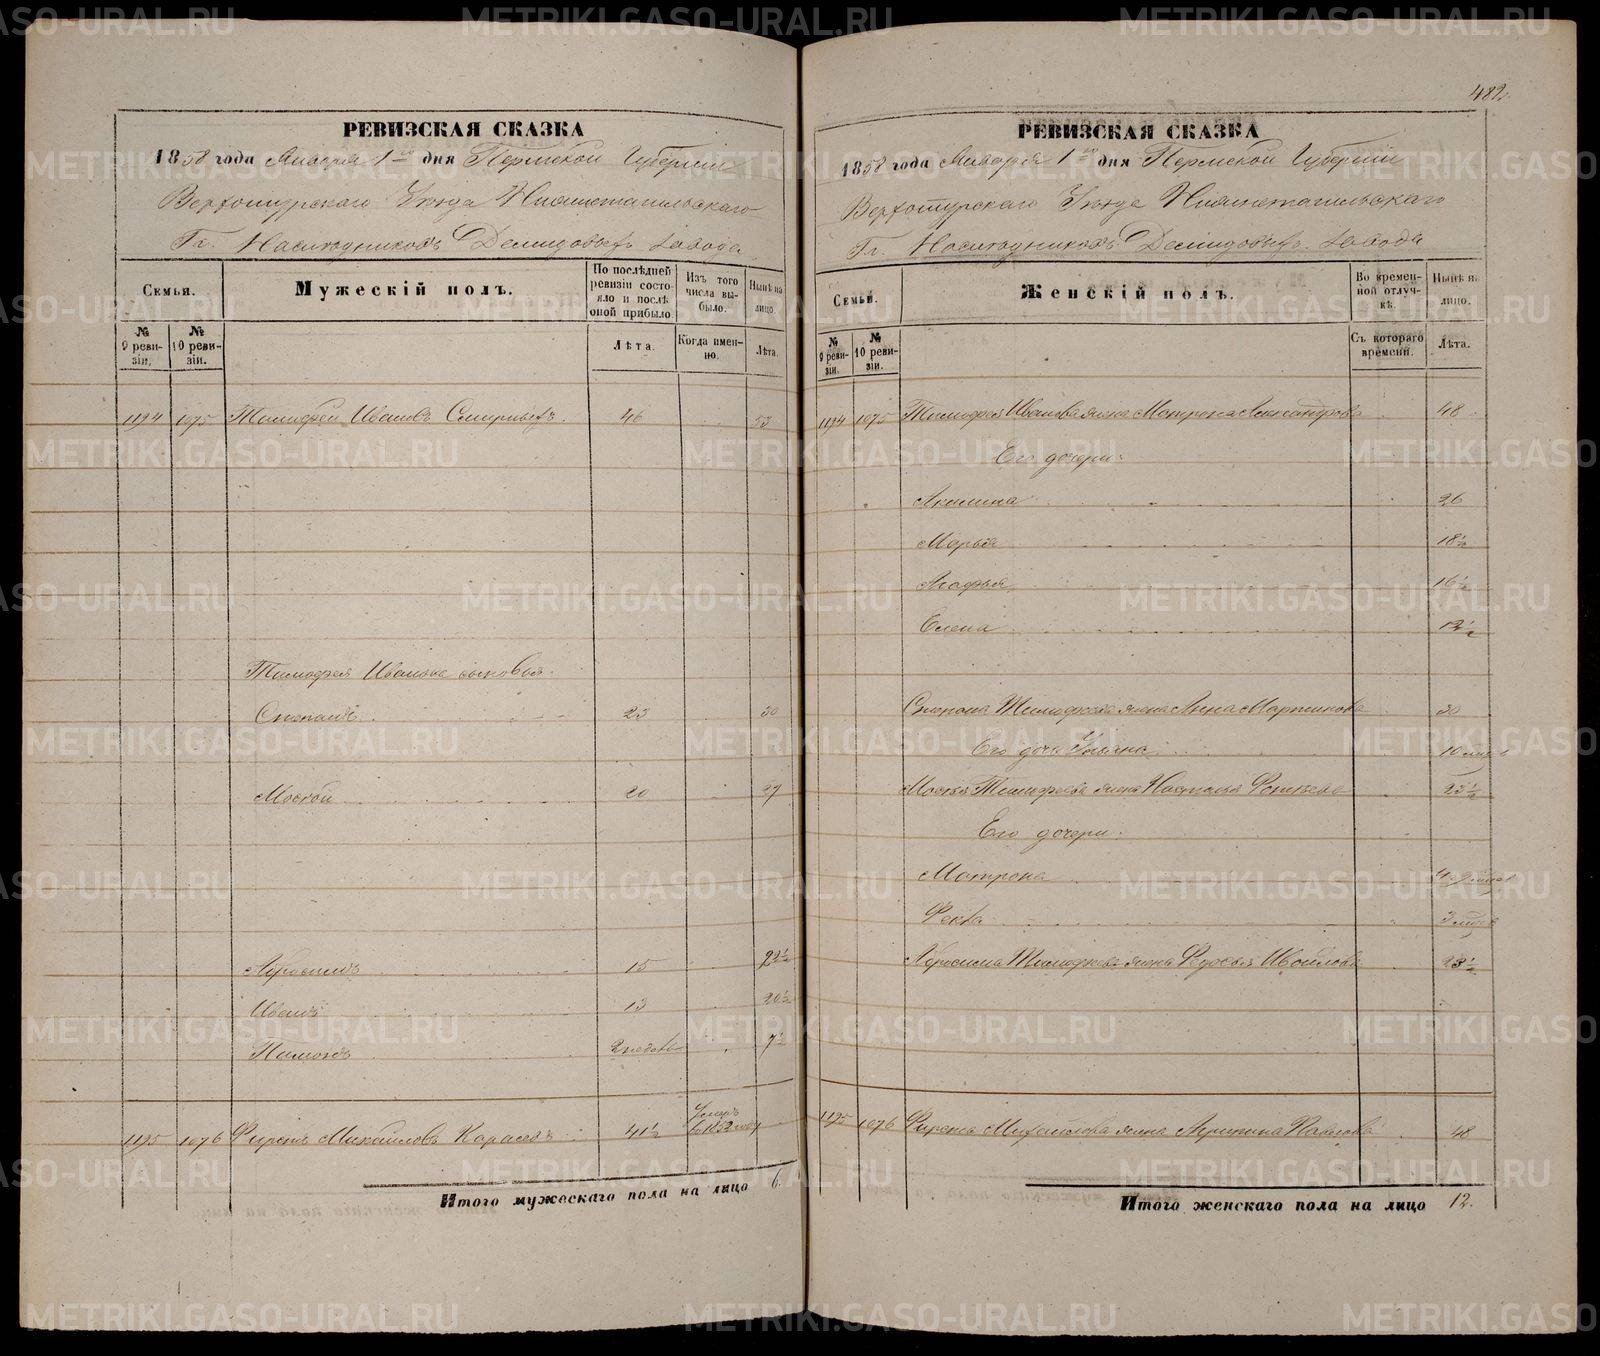 482.
РЕВИЗСКАЯ СКАЗКА
1858 года Января 1го дня Пермской Губернии
Верхотурскаго Уезда Нижнетагильскаго
Гг. Наследниковъ Демидовыхъ завода
Семьи.
Мужескій полъ.
По послѣдней ревизіи состояло и послѣ оной прибыло
Изъ того числа выбыло.
Нынѣ на лицо.
№ 9 ревизіи.
№ 10 ревизіи.
Лѣта.
Когда именно.
Лѣта.
1194 1075 Тимофей Ивановъ Смирныхъ. 46 53
Тимофея Иванова сыновья:
Степанъ 23 30
Мокей 20 27
Абросимъ 15 22½
Иванъ 13 20½
Пимонъ 2 недѣль 7½
1195 1076 Фирсъ Михайловъ Карасевъ 41½ Умеръ въ 1852 году
Итого мужескаго пола на лицо 6.
РЕВИЗСКАЯ СКАЗКА
1858 года Января 1го дня Пермской Губерніи
Верхотурскаго Уезда Нижнетагильскаго
Гг. Наследниковъ Демидовыхъ завода
Семьи.
Женскій полъ.
Во временной отлучкѣ.
Нынѣ на лицо.
№ 9 ревизіи.
№ 10 ревизіи.
Съ котораго времени.
Лѣта.
1194 1075 Тимофея Иванова жена Матрена Александрова 48
Его дочери:
Акилина 26
Марья 18½
Агафья 16½
Елена 12½
Степана Тимофеева жена Анна Мартинова 30
Его дочь Ульяна 10 мцев
Мокея Тимофеева жена Настасья 25½
Его дочери:
Матрена 4. 9 мцев
Фекла 3 мцев
Абросима Тимофеева жена Федосья 23½
1195 1076 Фирса Михайлова жена Павлова 48
Итого женскаго пола на лицо 12.
METRIKI.GASO-URAL.RU